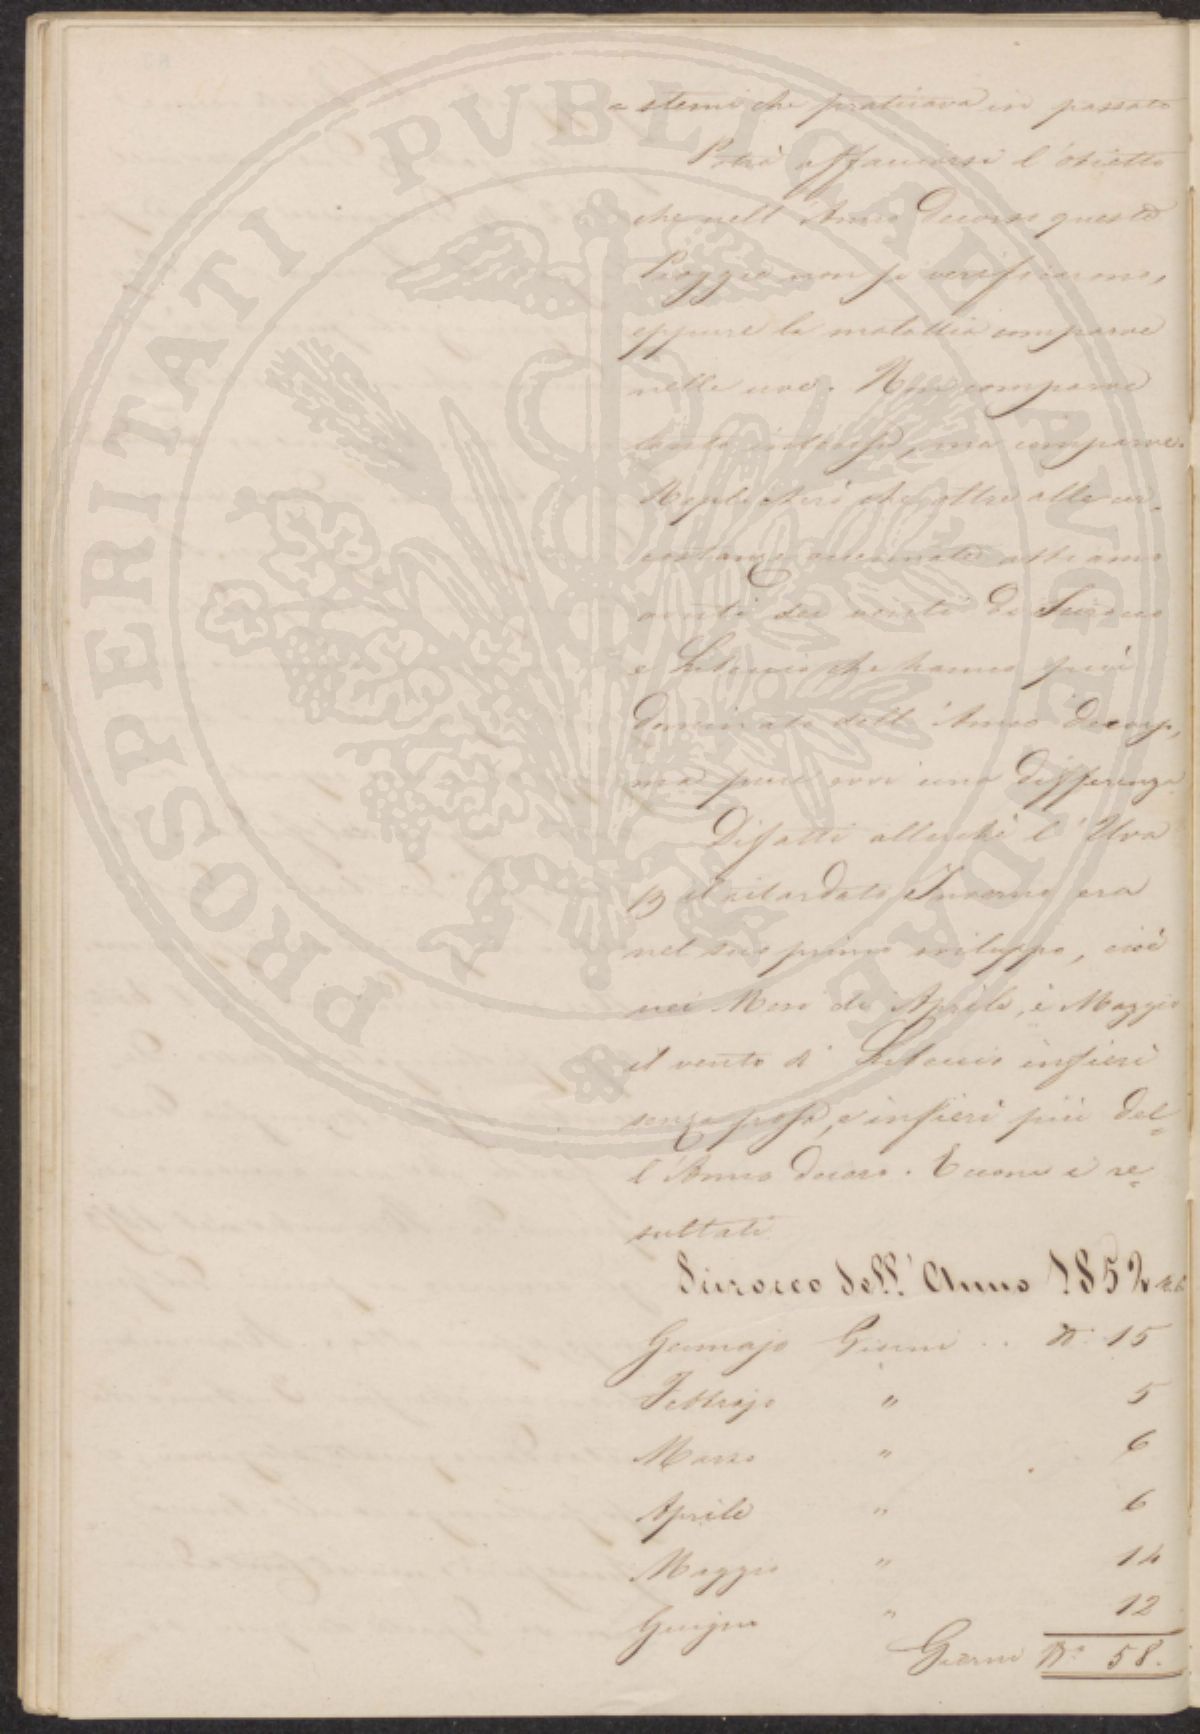 = stemi che praticava in passato
Potrà affacciarsi l'obietto
che nell'Anno decorso queste
Pioggie non si verificarono,
eppure la malattia comparve
nelle uve. Non comparve
tanto intensa, ma comparve.
Replicherò che oltre alle cir=
costanze accennate abbiamo
avuti dei venti di Scirocco
e Libeccio che hanno più
dominato dell'Anno decorso,
ma pure avvi una differenza
Difatti allorchè l'Uva
p il ritardato Inverno era
nel suo primo sviluppo, cioè
nei Mesi di Aprile, e Maggio
il vento di Libeccio infierì
senza posa, e infierì più del=
l'Anno decorso. Eccone i re=
sultati
Scirocco dell'Anno 1852
Gennajo Giorni .. N. 15
Febbrajo " 5
Marzo " 6
Aprile " 6
Maggio " 14
Giugno " 12
Giorni N.° 58.
PROSPERITATI PVBLICAE AVGENDAE